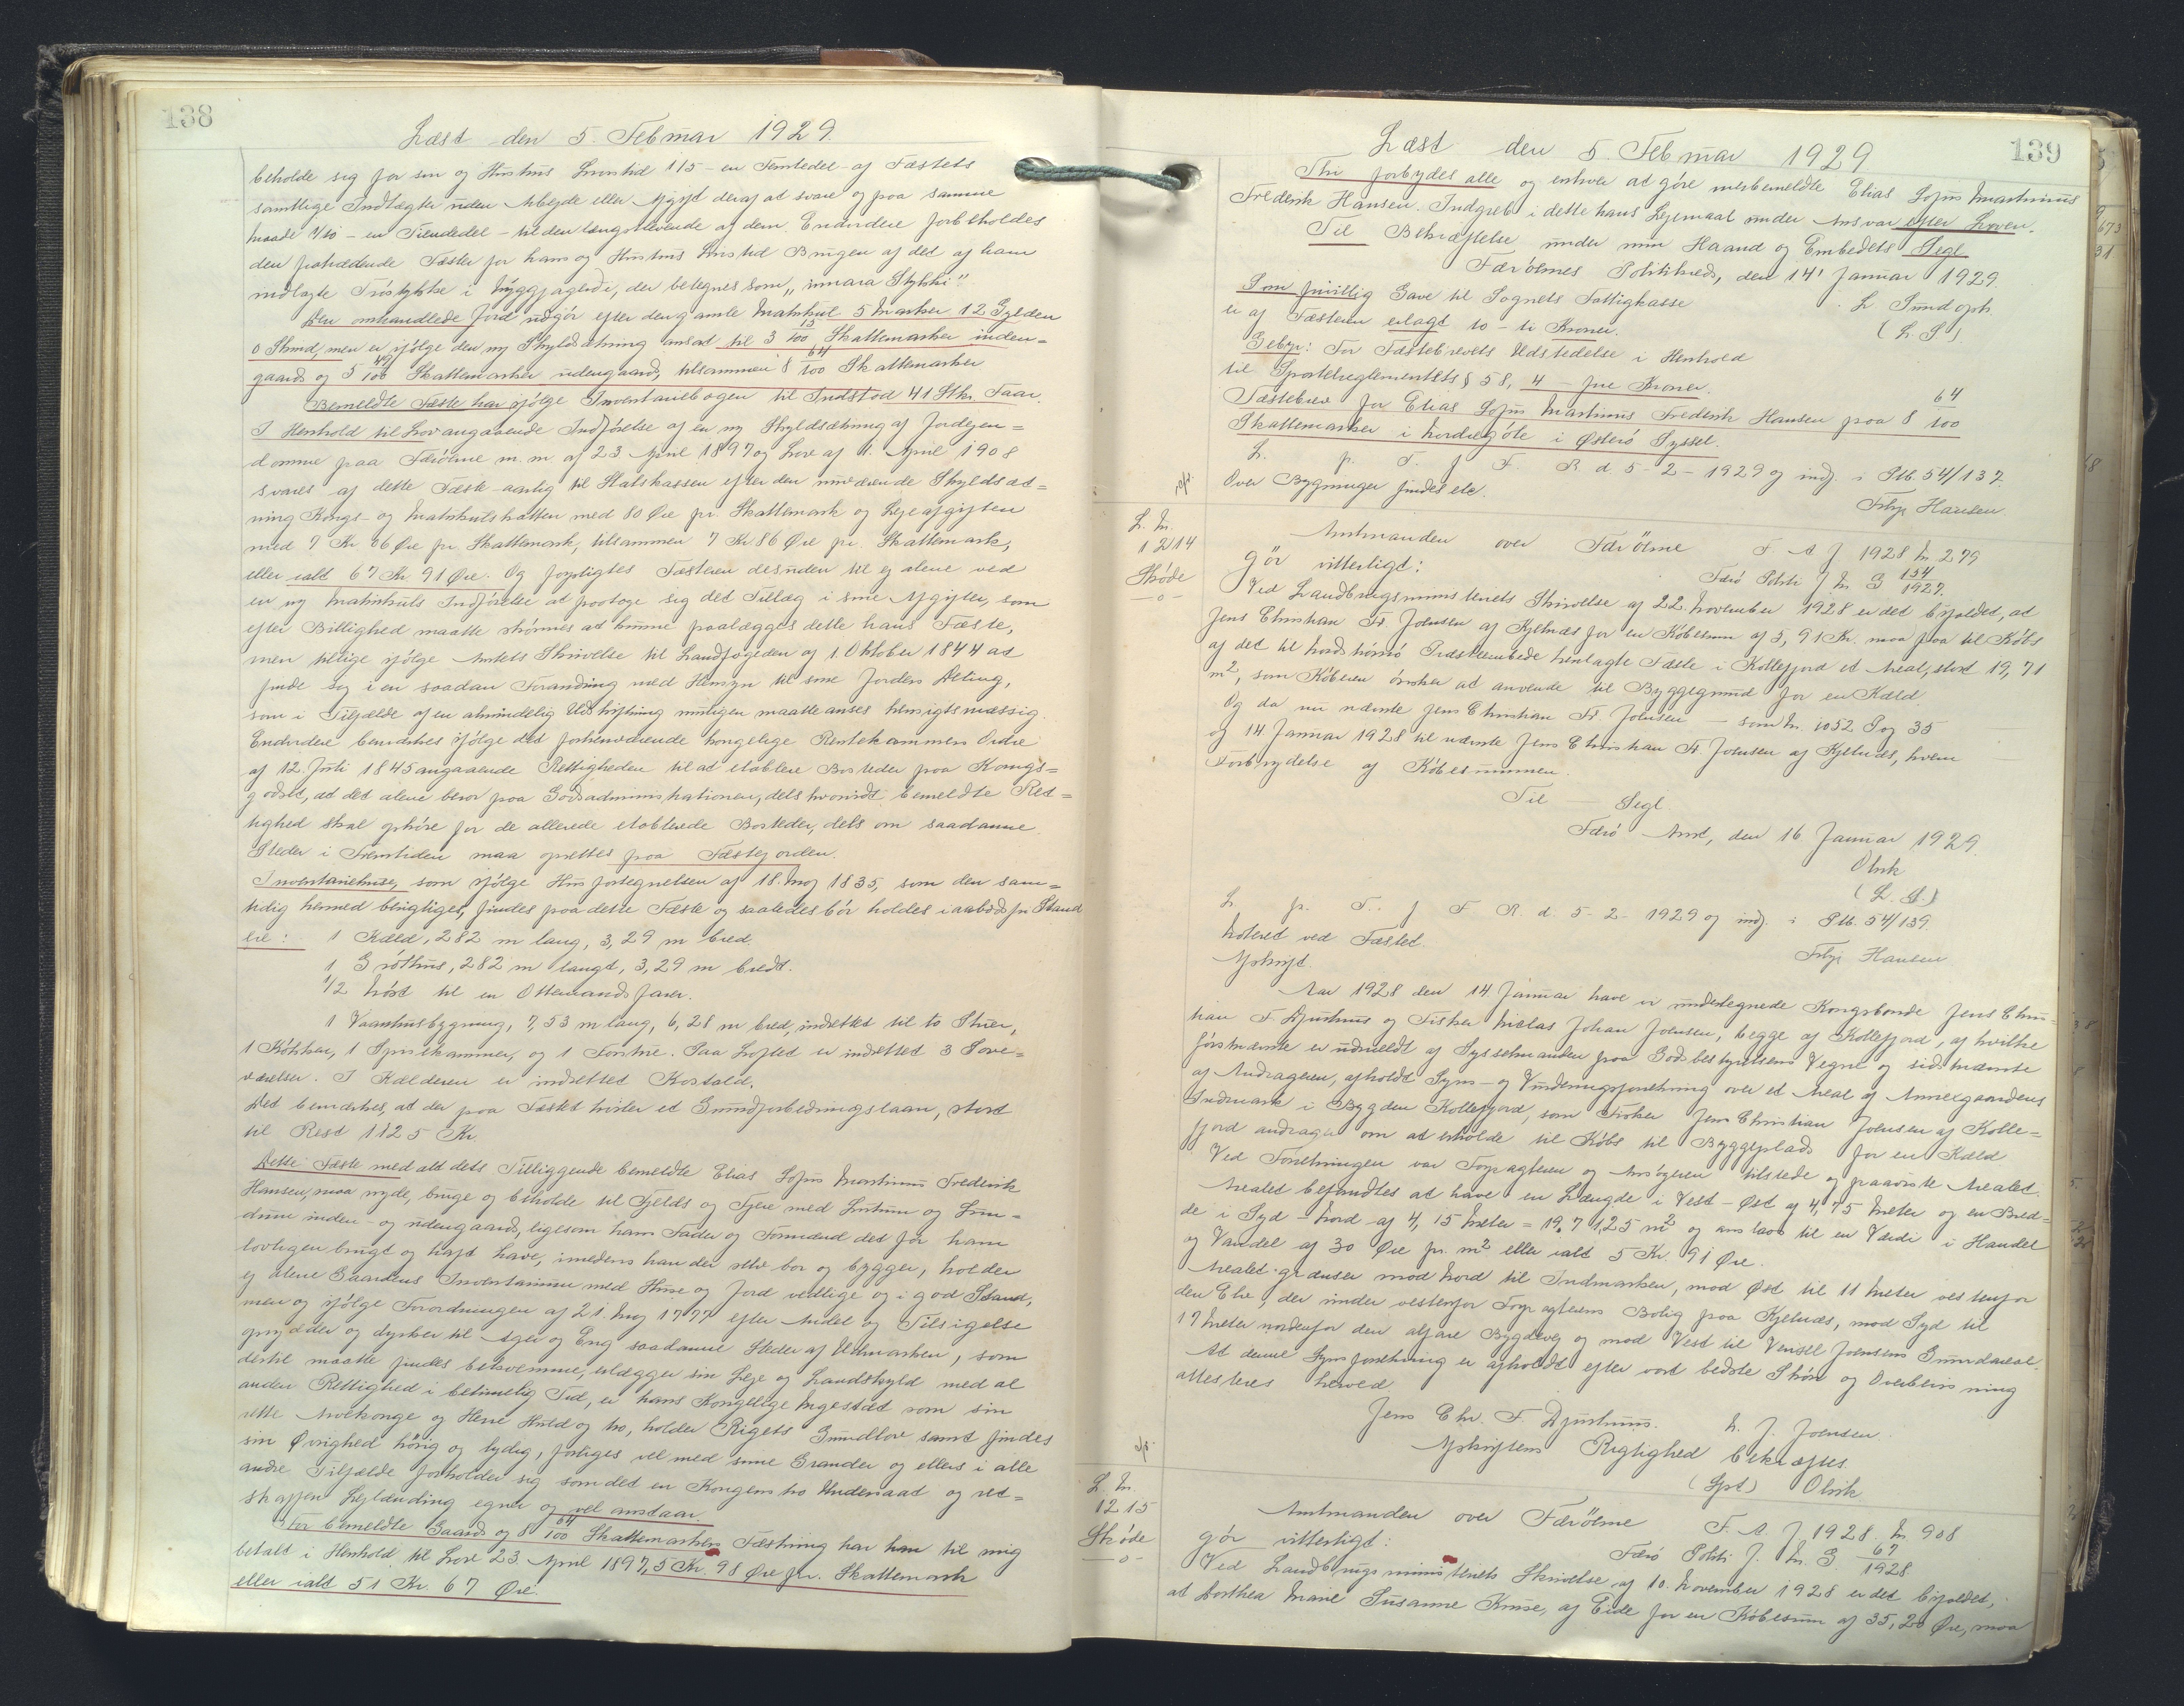 138
Læst den 5. Februar 1929.
beholde sig for sin og Hustrus Livstid 1/5 - en Femtedel - af Fæstets
samtlige Indtægter uden Arbejde eller Afgift deraf at svare og paa samme
Maade 1/10 - en Tiendedel - til den længstlevende af dem. Endvidere forbeholdes
den fratrædende Fæster for hans og Hustrus Livstid Brugen af det af ham
indlagte Trøstykke i Nyggjagerdi, der betegnes som "innara Stykki".
Den omhandlede Jord udgör efter den gamle Matrikul 5 Marker 12 Gylden
0 Skind, men er ifölge den ny Skyldsætning ansat til 3 15/100 Skattemarker inden-
gaards og 5 49/100 Skattemarker udengaards, tilsammen 8 64/100 Skattemarker
Bemeldte Fæste har ifölge Inventariebogen til Indstod 41 Stkr. Faar.
I Henhold til Lov angaaende Indförelse af en ny Skyldsætning af Jordejen-
domme paa Færöerne m. m. af 23 April 1897 og Lov af 1. April 1908
svares af dette Fæste aarlig til Statskassen efter den nuværende Skyldsæt-
ning Kongs- og Matrikulskatten med 80 Øre pr. Skattemark og Lejeafgiften
med 7 Kr 06 Øre pr. Skattemark, tilsammen 7 Kr 86 Øre pr. Skattemark,
eller ialt 67 Kr. 91 Øre. Og forpligtes Fæsteren desuden til ej alene ved
en ny Matrikuls Indförelse at paatage sig det Tillæg i sine Afgifter, som
efter Billighed maatte skönnes at kunne paalægges dette hans Fæste,
men tillige ifölge Amtets Skrivelse til Landfogeden af 1 Oktober 1844 at
finde sig i en saadan Forandring med Hensyn til sine Jorders Deling,
som i Tilfælde af en almindelig Udskiftning muligen maatte anses hensigtsmæssig.
Endvidere bemærkes ifölge det forhenværende kongelige Rentekammers Ordre
af 12. Juli 1845 angaaende Rettigheden til at etablere Bosteder paa Kongs-
godset, at det alene beror paa Godsadministrationen, dels hvorvidt bemeldte Ret-
tighed skal ophöre for de allerede etablerede Bosteder, dels om saadanne
Steder i Fremtiden maa oprettes paa Fæstejorden.
Inventariehuse, som ifölge Husfortegnelsen af 18. Maj 1835, som den sam-
tidig hermed berigtiges, findes paa dette Fæste og saaledes bör holdes i aabodsfri Stand
ere: 1 Kæld, 282 m lang, 3,29 m bred.
1 Gróthus, 282 m langt, 3,29 m bredt.
1/2 Nöst til en Ottemandsfarer.
1 Vaanhusbygning, 7,53 m lang, 6,28 m bred, indrettet til to Stuer,
1 Kökken, 1 Spisekammer, og 1 Forstue. Paa Loftet er indrettet 3 Sove-
værelser. I Kælderen er indrettet Kostald.
Det bemærkes, at der paa Fæstet hviler et Grundforbedringslaan, stort
til Rest 1125 Kr.
Dette Fæste med alt dets Tilliggende bemeldte Elias Sofus Martinus Frederik
Hansen, maa nyde, bruge og beholde til Fjelds og Fjere med Lutum og Lun-
dum inden- og udengaards, ligesom hans Fader og Formænd det för ham
lovligen brugt og haft have, imedens han der selv bor og bygger, holder
ej alene Gaardens Inventarium med Huse og Jord vedlige og i god Stand,
men og ifölge Forordningen af 21 Maj 1777 efter Andel og Tilsigelse
oprydder og dyrker til Ager og Eng saadanne Steder af Udmarken, som
dertil maatte findes bekvemme, erlægger sin Leje og Landskyld med al
anden Rettighed i betimelig Tid, er hans Kongelige Majestæt som sin
rette Arvekonge og Herre Huld og tro, holder Rigets Grundlov samt findes
sin Øvrighed hörig og lydig, forliges vel med sine Grander og ellers i alle
andre Tilfælde forholder sig som det en Kongens tro Undersaat og ret-
skaffen Lejlænding egner og vel anstaar.
For bemeldte Gaard og 8 64/100 Skattemarkers Fæstning har han til mig
betalt i Henhold til Lov 23 April 1897, 5 Kr. 98 Øre pr. Skattemark
eller ialt 51 Kr. 67 Øre.
139
Læst den 5. Februar 1929
Thi forbydes alle og enhver at göre mer bemeldte Elias Sofus Martinus
Frederik Hansen. Indgreb i dette hans Lejemaal under Ansvar efter Loven.
Til Bekræftelse under min Haand og Embedets Segl.
Færöernes Politikreds, den 14' Januar 1929.
Som frivillig Gave til Sognets Fattigkasse
L Sundoph.
er af Fæsteren erlagt 10 - ti Kroner.
(L. S)
Gebyr: For Fæstebrevets Udstedelse i Henhold
til Sportelreglementets § 58, 4 - fire Kroner.
Fæstebrev for Elias Sofus Martinus Frederik Hansen paa 8 64/100
Skattemarker i Nordregöte i Østerö Syssel.
L. p. T. f F. R. d 5 - 2 - 1929 og indf. i Ptb. 54/137.
Over Bygninger findes etc.
Filip Hansen.
L. Nr.
1214
Sköde
-o-
Amtmanden over Færöerne F. A. J 1928 Nr. 279
gör vitterligt:
Færö Politi J. Nr. G 154/1927.
Ved Landbrugsministeriets Skrivelse af 22. November 1928 er det bifaldet, at
Jens Christian Fr. Joensen af Kjelnæs for en Köbesum af 5,91 Kr. maa faa til Köbs
af det til Nordströmö Præsteembede henlagte Fæste i Kollefjord et Areal, stort 19,71
m², som Köberen önsker at anvende til Byggegrund for en Kæld
Og da nu nævnte Jens Christian Fr. Joensen - som Nr. 1052 Pag 35
og 14 Januar 1928 til nævnte Jens Christian Fr. Joensen af Kjelnæs, hvem
Forbrydelse af Köbesummen.
Til - Segl.
Færö Amt, den 16 Januar 1929.
Olrik
(L. S.)
L. p. T. f F. R. d. 5 - 2 - 1929 og indf. i Ptb. 54/139.
Noteret ved Fæstet.
Filip Hansen
Afskrift.
Aar 1928 den 14 Januar have vi undertegnede Kongsbonde Jens Chris-
tian F. Djurhuus og Fisker Niclas Johan Joensen, begge af Kollefjord, af hvilke
förstnævnte er udmeldt af Sysselmanden paa Godsbestyrelsens Vegne og sidstnævnte
af Andrageren, afholdt Syns- og Vurderingsforretning over et Areal af Annexgaardens
Indmark i Bygden Kollefjord, som Fisker Jens Christian Joensen af Kolle-
fjord andrager om at erholde til Köbs til Byggeplads for en Kæld
Ved Forretningen var Forpagteren og Ansögeren tilstede og paaviste Arealet.
Arealet befandtes at have en Længde i Vest - Øst af 4,75 Meter og en Bred-
de i Syd - Nord af 4,15 Meter = 19,7125 m² og ansloos til en Værdi i Handel
og Vandel af 30 Øre pr. m² eller ialt 5 Kr. 91 Øre.
Arealet grænser mod Nord til Indmarken, mod Øst til 11 Meter vestenfor
den Elv, der rinder vestenfor Forpagterens Bolig paa Kjelnæs, mod Syd til
17 Meter nordenfor den alfare Bygdevej og mod Vest til Vensel Joensens Grundareal.
At denne Synsforretning er afholdt efter vort bedste Skön og Overbevisning
attesteres herved
Jens Chr. F. Djurhuus. N. J. Joensen.
Afskriftens Rigtighed bekræftes.
(Sgd) Olrik
L. Nr.
1215
Sköde
-o-
Amtmanden over Færöerne F. A. J. 1928 Nr 908
gör vitterligt:
Færö Politi J. Nr. G 67/1928
Ved Landbrugsministeriets Skrivelse af 10. November 1928 er det bifaldet,
at Dorthea Marie Susanne Kruse, af Eide for en Köbesum af 35,20 Øre, maa